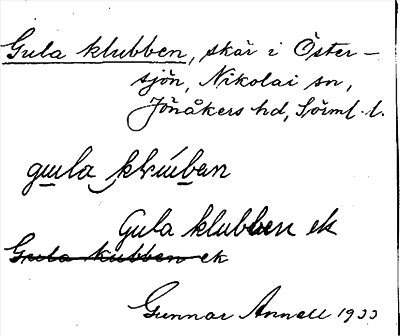 Gula klubben, skär i Öster-
sjön, Nikolai sn,
Jönåkers hd, Sörml. l.
gula klúban
Gula klubben ek
Gula kubben ek
Gunnar Annell 1933